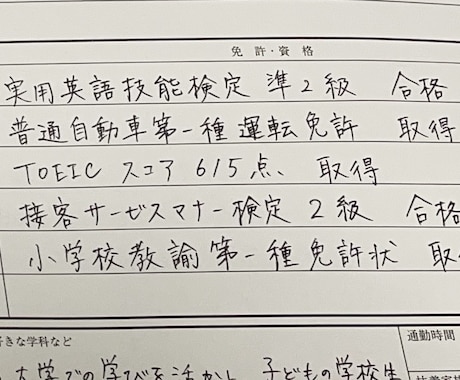 免許・資格
実用英語技能検定 準2級 合格
普通自動車第一種運転免許 取得
TOEIC スコア 615点、取得
接客サービスマナー検定 2級 合格
小学校教諭第一種免許状 取
好きな学科など
通勤時間
大学での学びを活かし、子どもの学校生